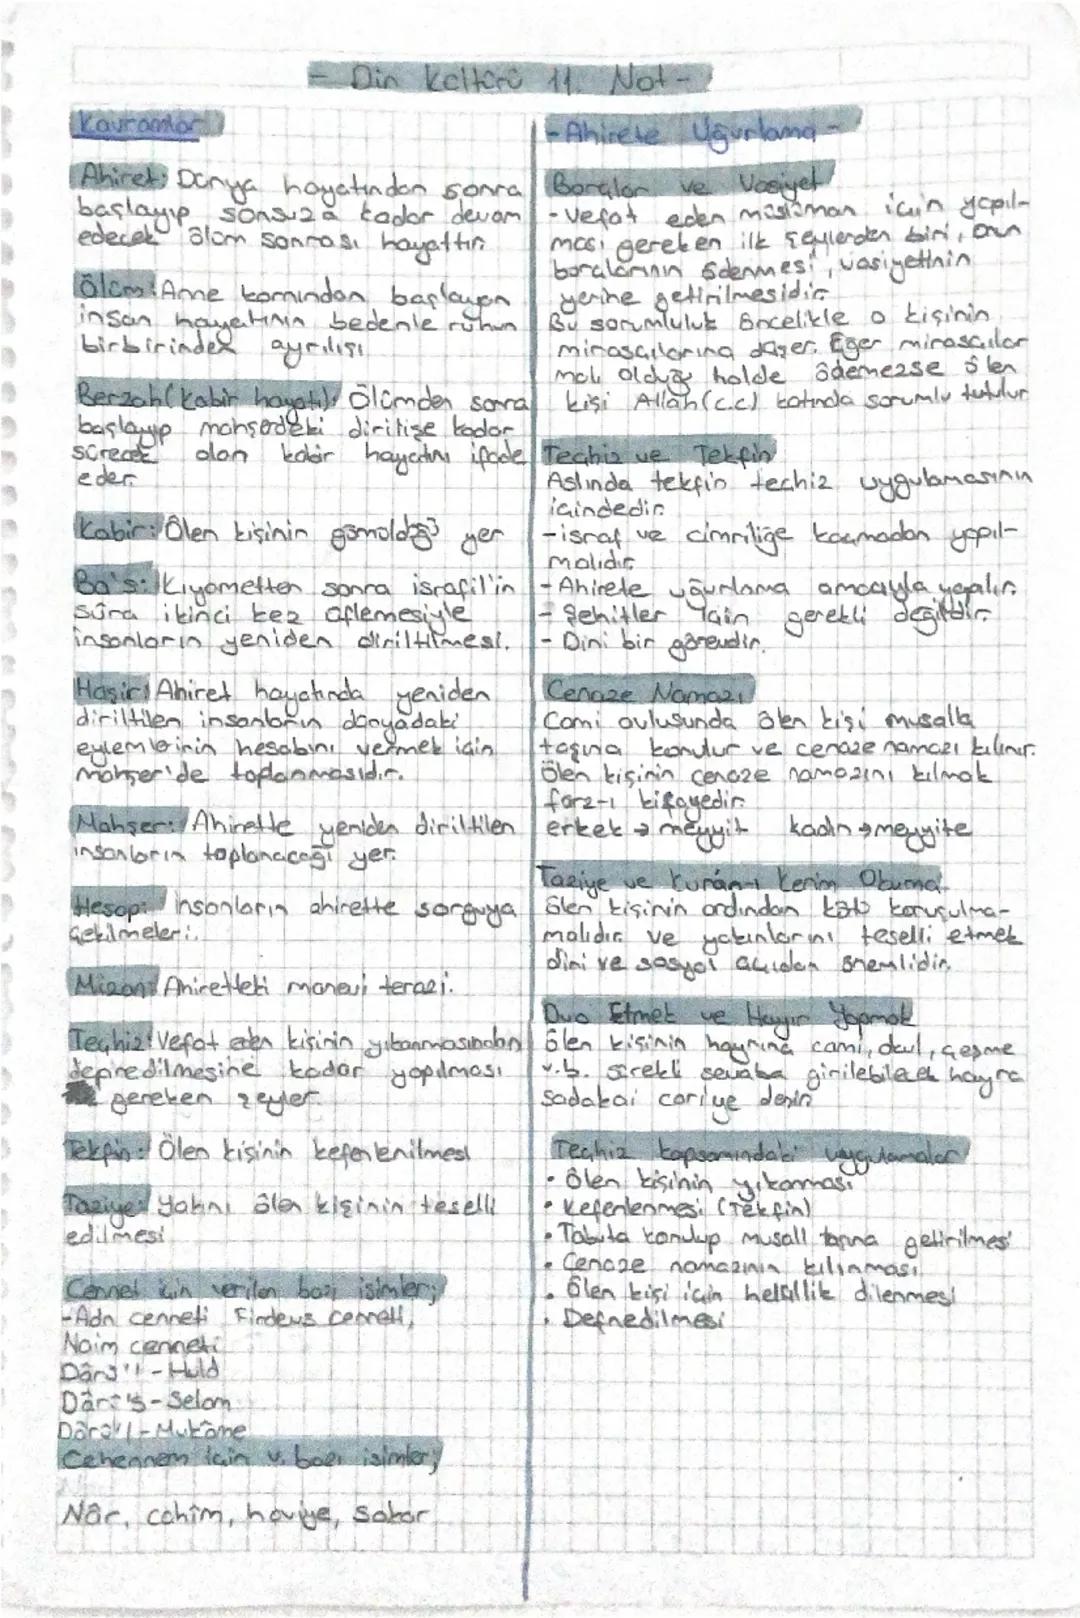 - Din Kültürü 11. Not -
Kavramlar
Ahiret: Dünya hayatından sonra
başlayıp sonsuza kadar devam
edecek ölüm sonrası hayattır.
Ölüm: Anne karnından başlayan
insan hayatının bedenle ruhun
birbirinden ayrılışı
Berzah (kabir hayatı): Ölümden sonra
başlayıp mahşerdeki dirilişe kadar
sürecek olan kabir hayatını ifade
eder.
Kabir: Ölen kişinin gömüldüğü yer
Ba's: Kıyametten sonra israfil'in
sûra ikinci kez üflemesiyle
insanların yeniden diriltilmesi.
Haşir: Ahiret hayatında yeniden
diriltilen insanların dünyadaki
eylemlerinin hesabını vermek için
mahşer'de toplanmasıdır.
Mahşer: Ahirette yeniden diriltilen
insanların toplanacağı yer.
Hesap: insanların ahirette sorguya
çekilmeleri.
Mizan: Ahiretteki manevi terazi.
Teçhiz: Vefat eden kişinin yıkanmasından
defnedilmesine kadar yapılması
gereken şeyler.
Tekfin: Ölen kişinin kefenlenilmesi
Taziye: Yakını ölen kişinin teselli
edilmesi
Cennet için verilen bazı isimler;
-Adn cenneti, Firdevs cenneti,
Naim cenneti
Dârü'l-Huld
Dârü's-Selam
Dârü'l-Mukâme
Cehennem için v. bazı isimler;
Nâr, cahîm, haviye, sakar
-Ahirete Uğurlama-
Borçlar ve Vasiyet
-Vefat eden müslüman için yapıl-
ması gereken ilk şeylerden biri, onun
borçlarının ödenmesi, vasiyetinin
yerine getirilmesidir.
Bu sorumluluk öncelikle o kişinin
mirasçılarına düşer. Eğer mirasçılar
malı olduğu halde ödemezse ölen
kişi Allah (c.c) katında sorumlu tutulur
Teçhiz ve Tekfin
Aslında tekfin teçhiz uygulamasının
içindedir.
-israf ve cimriliğe kaçmadan yapıl-
malıdır.
-Ahirete uğurlama amacıyla yapılır.
- Şehitler için gerekli değildir.
- Dini bir görevdir.
Cenaze Namazı
Cami avlusunda ölen kişi musalla
taşına konulur ve cenaze namazı kılınır.
Ölen kişinin cenaze namazını kılmak
farz-ı kifayedir.
erkek → meyyit kadın → meyyite
Taziye ve Kurân-ı Kerim Okuma
Ölen kişinin ardından kötü konuşulma-
malıdır ve yakınlarını teselli etmek
dini ve sosyal açıdan önemlidir.
Dua Etmek ve Hayır Yapmak
Ölen kişinin hayrına cami, okul, çeşme
v.b. sürekli sevaba girilebilecek hayra
sadakai cariye denir
Teçhiz kapsamındaki uygulamalar
• Ölen kişinin yıkanması
• Kefenlenmesi (Tekfin)
• Tabuta konulup musall taşına getirilmesi
• Cenaze namazının kılınması
• Ölen kişi için helallik dilenmesi
• Defnedilmesi